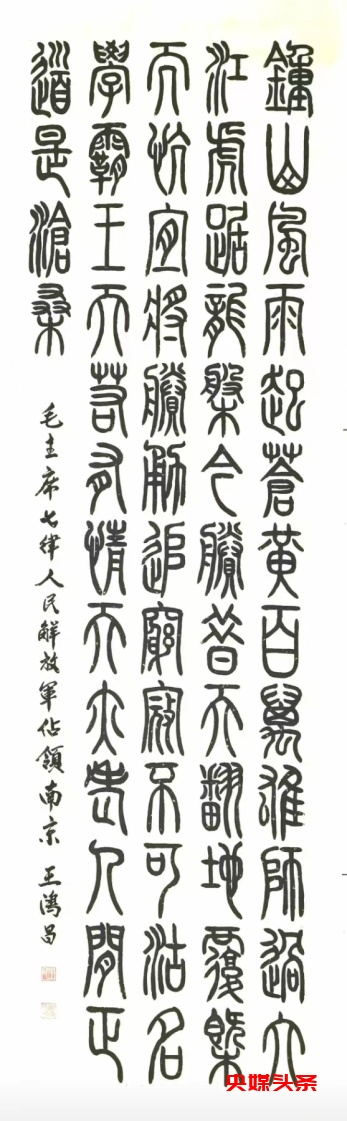 鐘山風雨起蒼黃百萬雄師過大
江虎踞龍槃今勝昔天翻地覆槩
而忼宜將賸勇追窮寇不可沽名
學霸王天若有情天亦老人間正
道是滄桑
毛主席七律人民解放軍佔領南京 王鴻昌
央媒头条